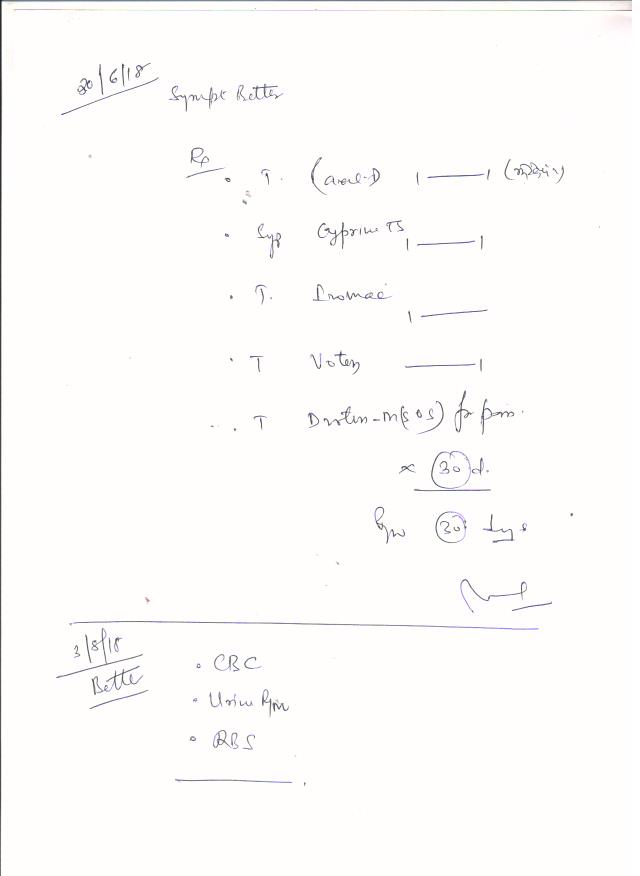 20/6/18
Sympt Better
Rx
• T. 1 —— 1
• Syp Cyprine TS 1 —— 1
• T. Dromac 1 ——
• T —— 1
• T Drotin-M (SOS) for pain.
x 30 d.
30 days
3/8/18
Bette
• CBC
• Urine R/m
• RBS